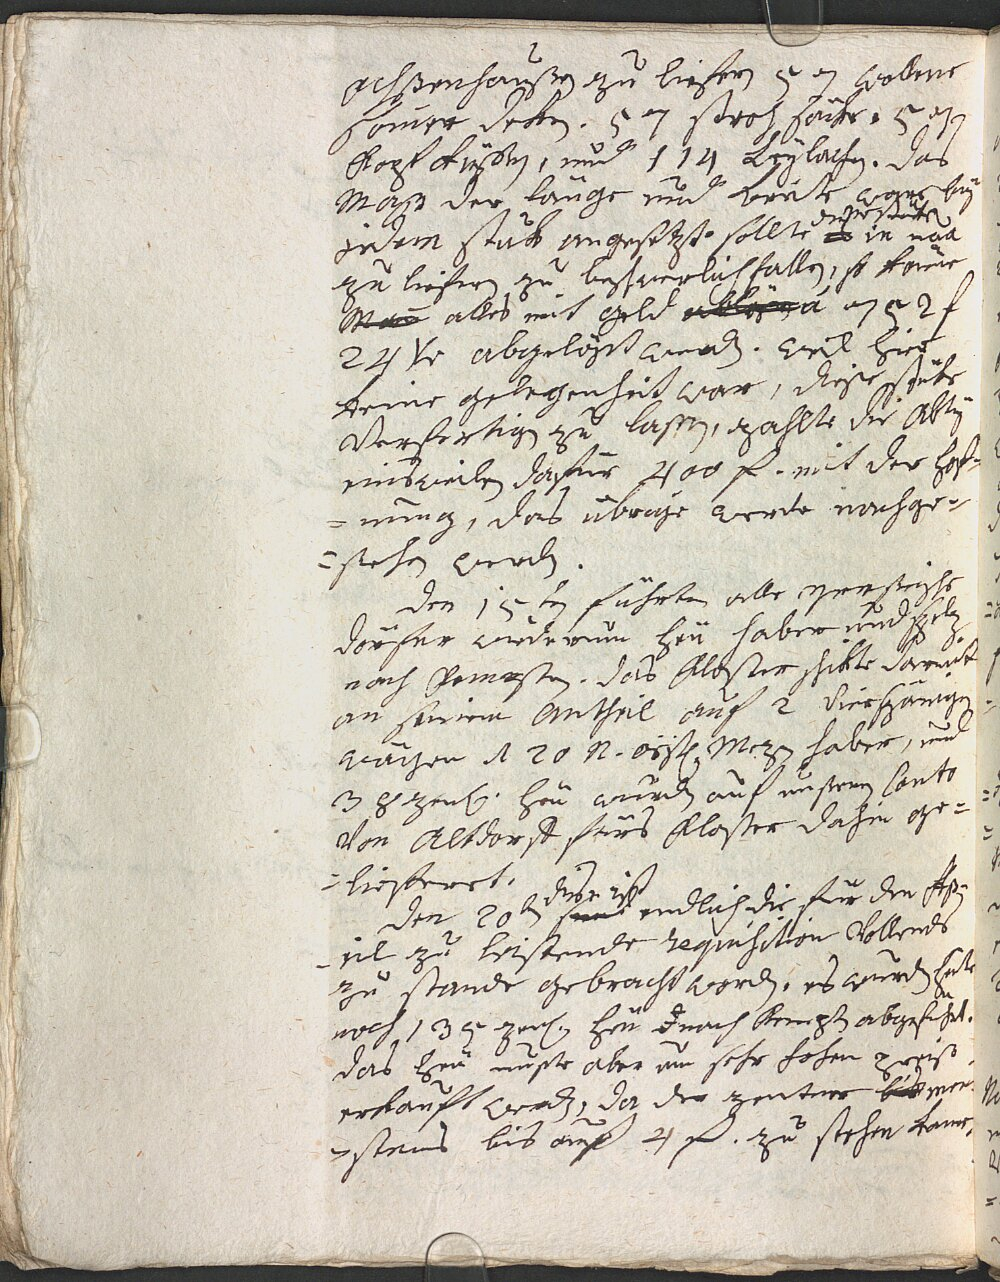 ochsenhausen zu liefern 57 wollene
Sommer deken. 57 stroh säke, 57
Kopf küssen, und 114 Leylachen. das
Maß der länge und breite war bey
jedem stük angesetzt. sollte diese stüke in nãa
zu liefern zu beschwerlich fallen, so könne
Man alles mit geld à 752 f
24 kr abgelößt werden. weil hier
keine gelegenheit war, diese stüke
verfertigen zu lassen, zahlte die Abtey
einsweilen dafür 400 f. mit der Hof-
=nung, das übrige werde nachge-
=sehen werden.
den 15ten führten alle
dörfer wiederum heü haber und
nach Kempten. das Kloster schikte darunter
an seinem Antheil auf 2 vierspänigen
wägen 20 N. östr. Mezen haber, und
38 zent. heü wurden auf unserm Conto
von Altdorf fürs Kloster dahin ge=
=liefert.
den 20ten diese ist endlich die für den Ap-
-ril zu leistende requisition vollends
zu stande gebracht worden. es wurden heute
noch 135 zent. heü nach Kempten abgeführt.
das heü muste aber um sehr hohen preiß
erkauft werden, da der zentner mei-
=stens bis auf 4 f. zu stehen kame,